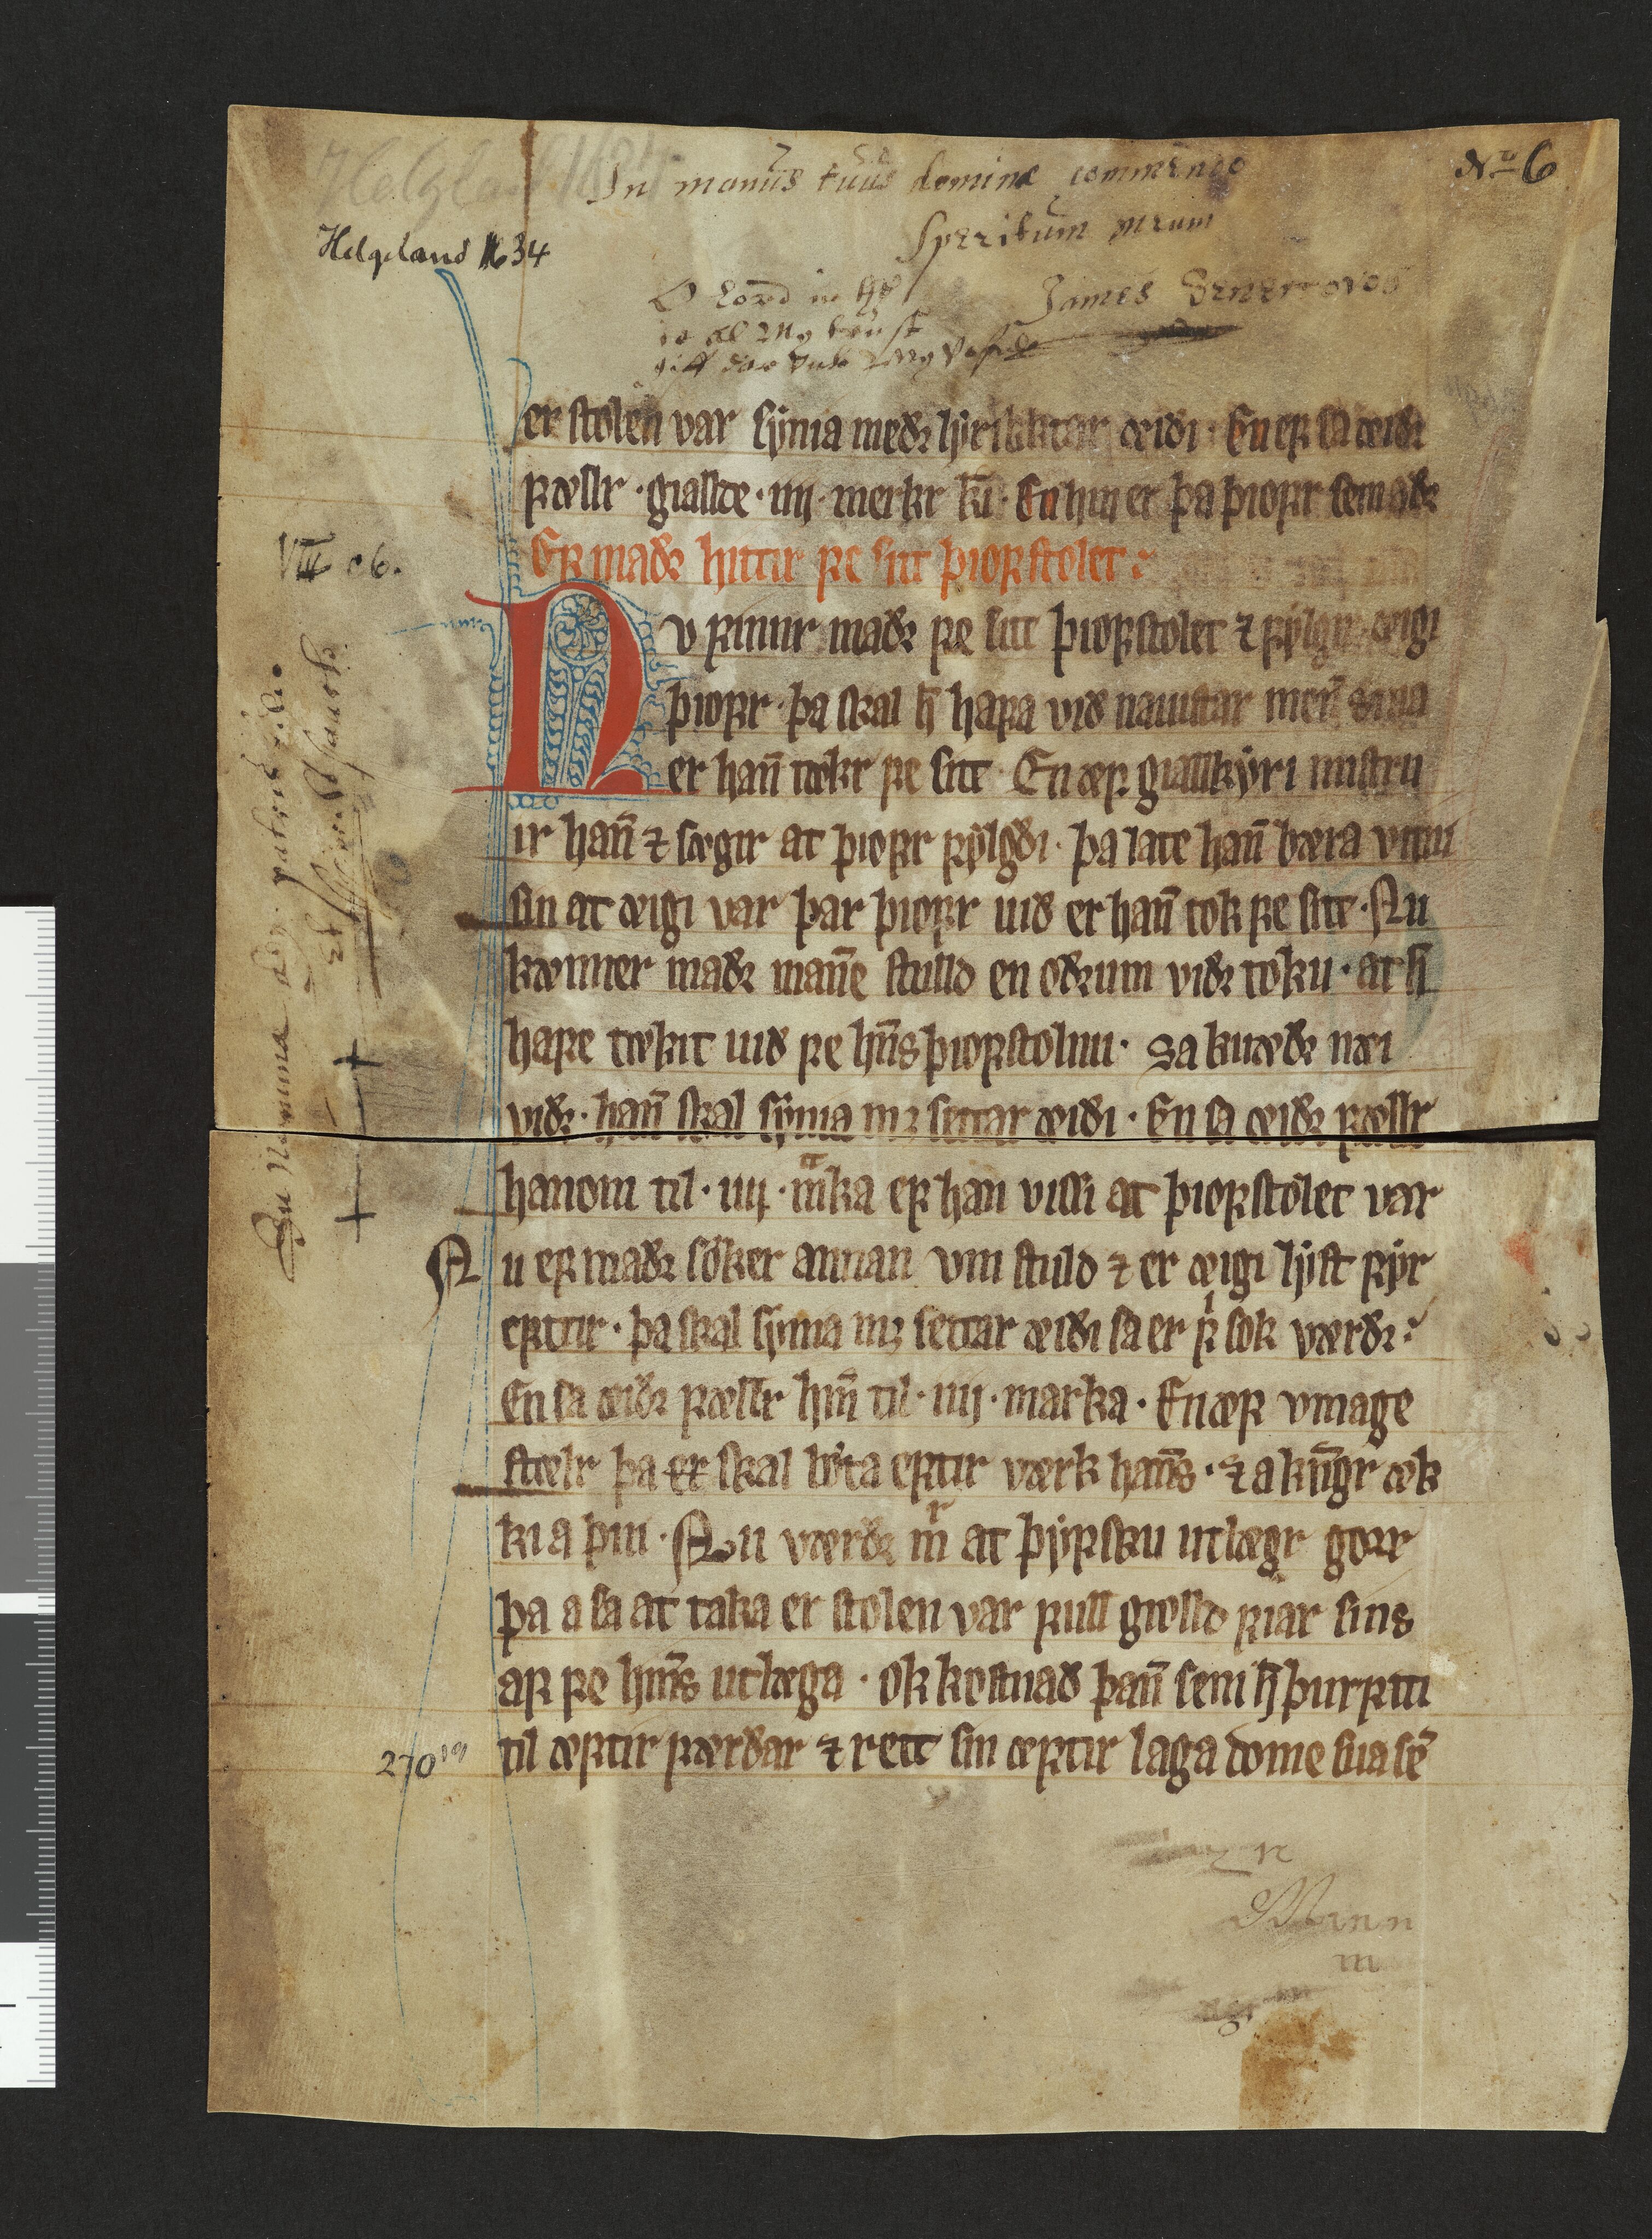 Nº 6
In manus tuus domine commendo
Speritum meum
Helgeland 1634
James
O Lord in
is al My trust
er stolen var synia medr lyrikktar æiði · En ef sa æiðr
fællr · giallde · iiij · merkr kr̄ · En hin er þa þiofr sem aðr
Ef maðr hittir fe sitt þiofstolet :
VIII c6.
Nv finnr maðr fe sitt þiofstolet ⁊ fylgir æigi
þiofr · þa skal h̄ hafa við nauistar men̄ sina
er han̄ tækr fe sitt · En æf giallkyri mistru
ir han̄ ⁊ sægir at þiofr fylgði · þa late han̄ bæra vitni
sin at æigi var þar þiofr uið er han̄ tok fe sitt · Nu
kænner maðr man̄e stulld en oðrum viðr toku · at h̄
hafe tækit uið fe hn̄s þiofstolnu · Sa kuæðr næi
viðr · han̄ skal synia mꝫ settar æiði · En sa æiðr fællr
hanom til · iiij · mka ef han vissi at þiofstolet var
Nu ef maðr söker annan vm stuld ⁊ er æigi lyst fyr
eftir · þa skal synia mꝫ settar æiði sa er f sok værðr :
En sa æiðr fællr hm̄ til · iiij · marka · En æf vmage
stælr þa er skal böta eftir værk han̄s · ⁊ a kn̄gr æk
ki a þui · Nu værðr mr at þyfsku utlægr gorr
þa a sa at taka er stolen var full giolld fiar sins
af fe hn̄s utlæga · ok kostnað þan̄ sem h̄ þurfti
270
til æftir færðar ⁊ rett sin æftir laga dome sua sē
In Nomine patris